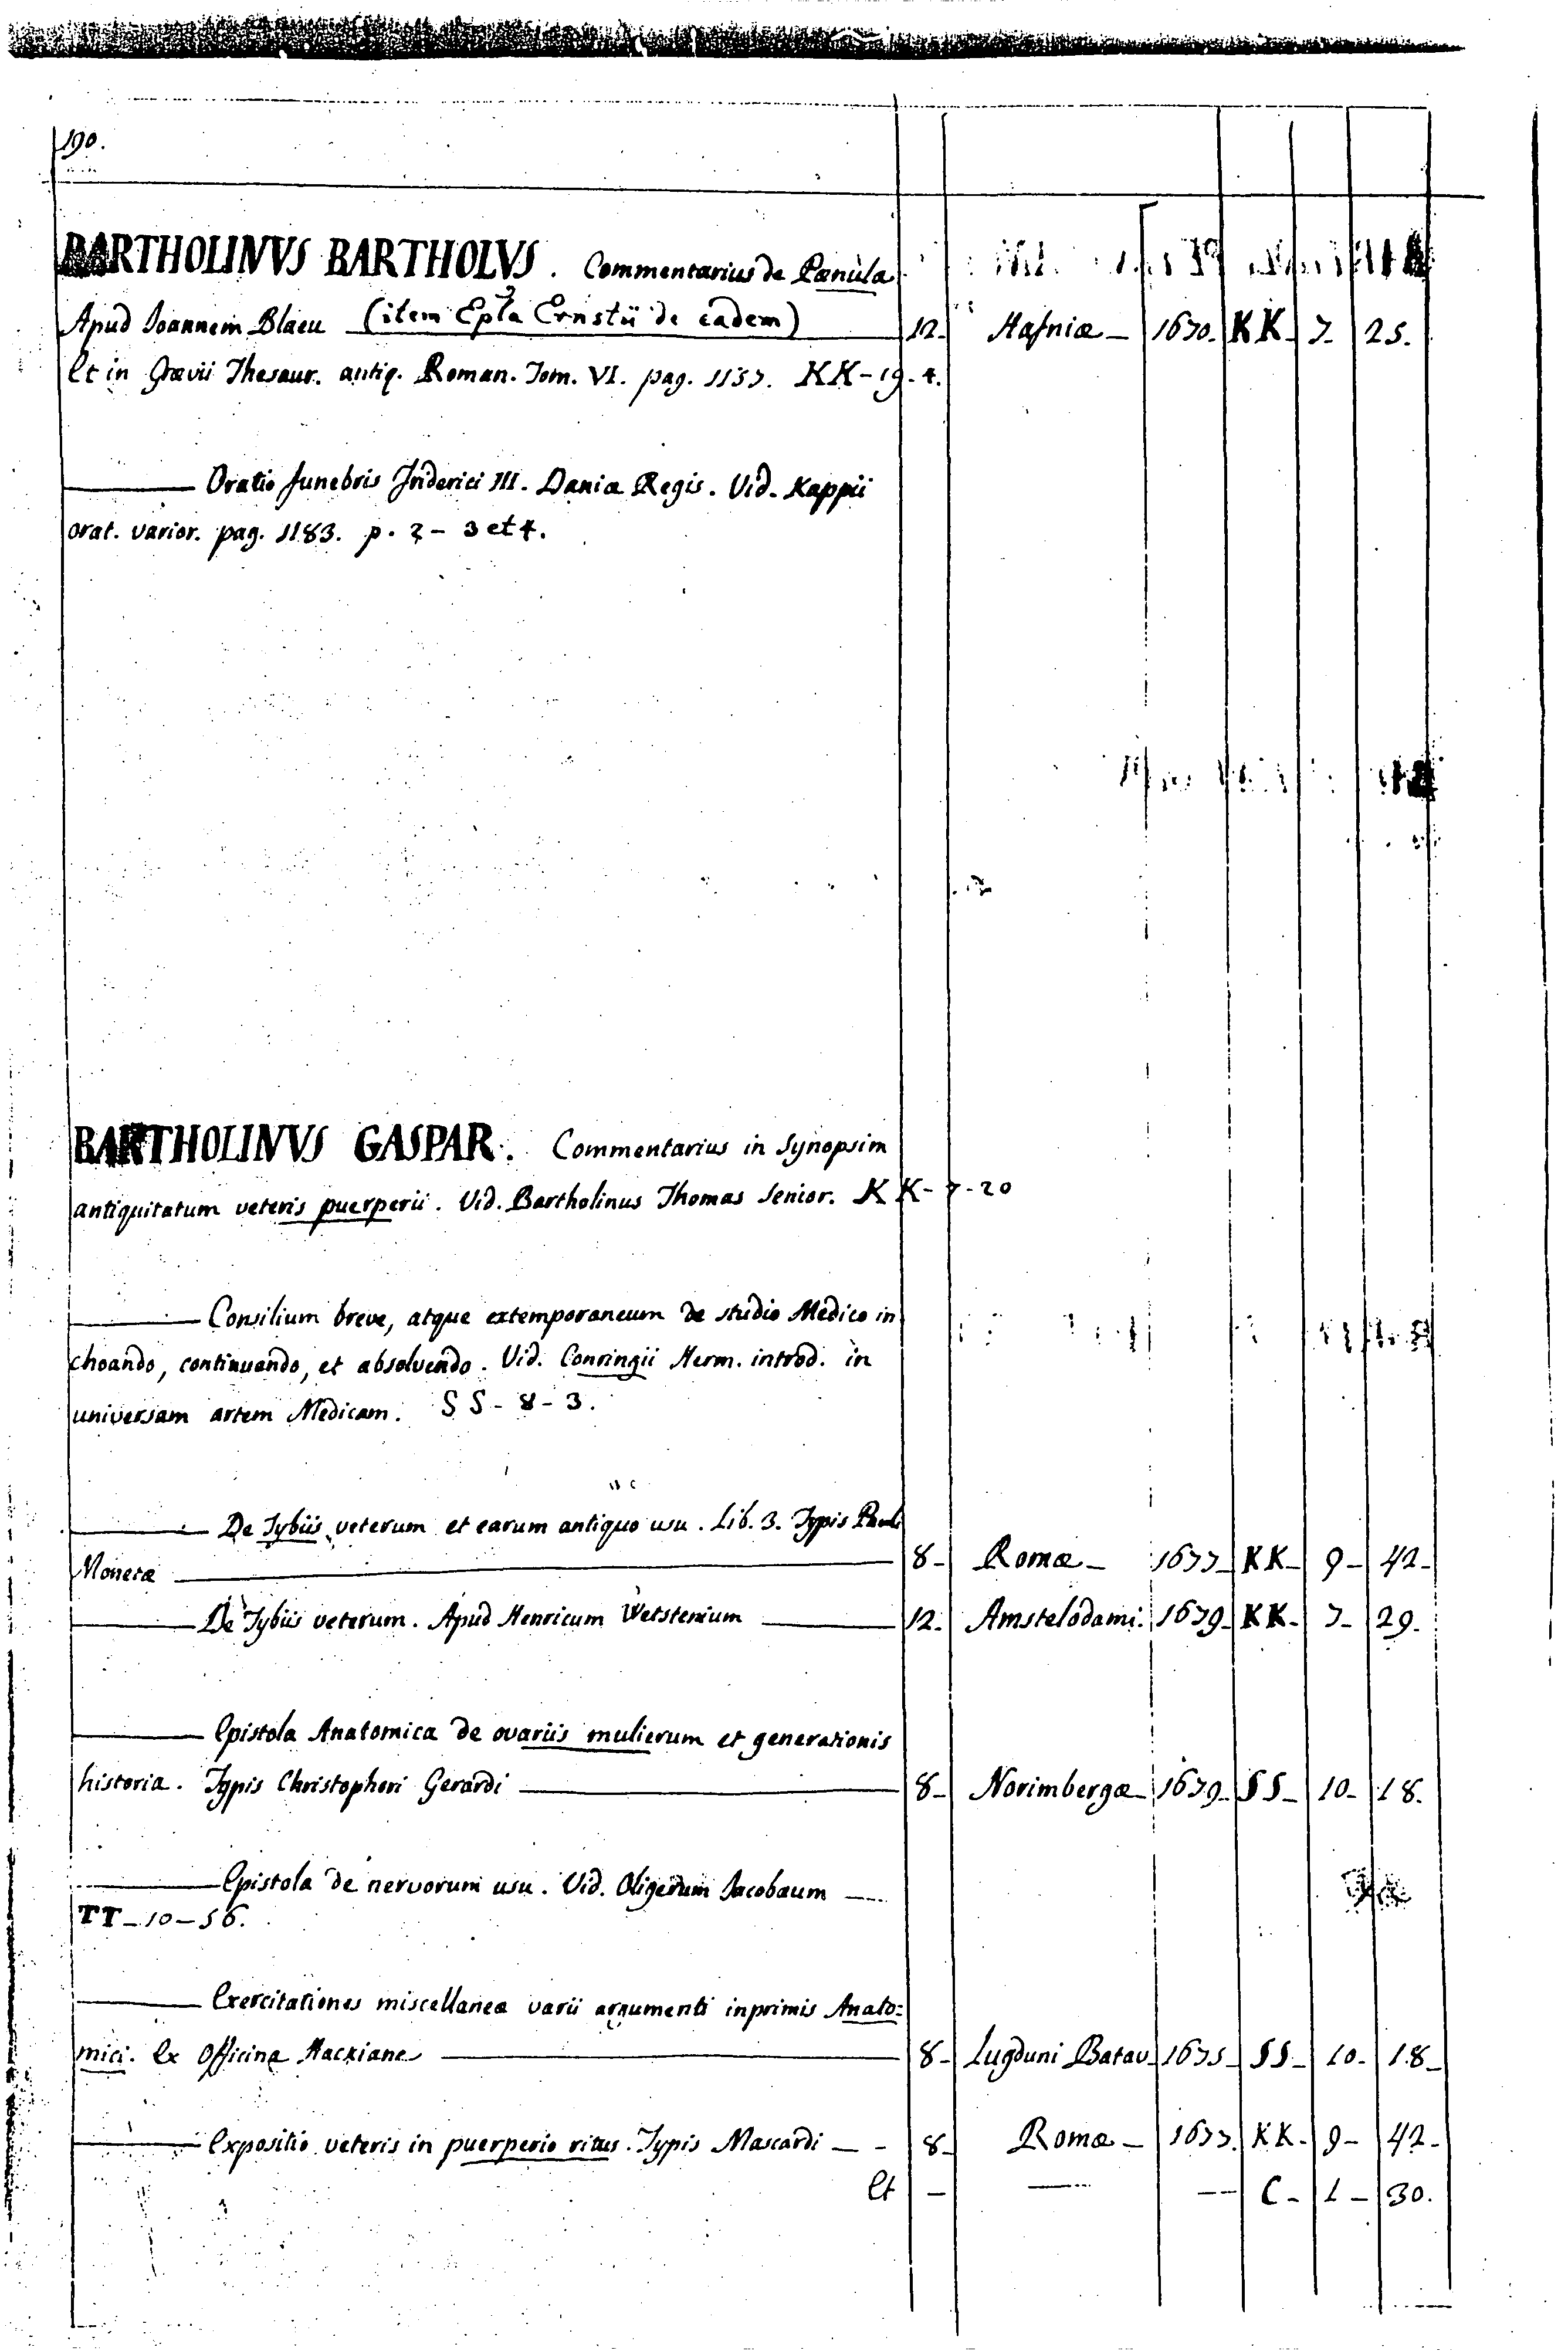 190.
BARTHOLINVS BARTHOLVS. Commentarius de Pænula
Apud Joannem Blaeu (item Epla Ernstii de eadem) 12. Hafniæ - 1670. KK- 7- 25.
Et in Grævii Thesaur. antiq. Roman. Tom. VI. pag. 1157. KK-19-4.
——— Oratio funebris Friderici III. Daniæ Regis. Vid. Kappii
orat. varior. pag. 1183. p. 2 - 3 et 4.
BARTHOLINVS GASPAR. Commentarius in Synopsim
antiquitatum veteris puerperii. Vid. Bartholinus Thomas Senior. KK-7-20
——— Consilium breve, atque extemporaneum de studio Medico in
choando, continuando, et absolvendo. Vid. Conringii Herm. introd. in
universam artem Medicam. SS-8-3.
——— De Tybiis veterum et earum antiquo usu. Lib. 3. Typis Pauli
Monetæ ——— 8- Romæ - 1677- KK- 9- 42-
——— De Tybiis veterum. Apud Henricum Wetstenium ——— 12. Amstelodami. 1679- KK- 7- 29.
——— Epistola Anatomica de ovariis mulierum et generationis
historia. Typis Christophori Gerardi ——— 8- Norimbergæ- 1679- SS- 10- 18.
——— Epistola de nervorum usu. Vid. Oligerum Jacobæum ——
TT-10-56.
——— Exercitationes miscellaneæ varii argumenti inprimis Anato=
mici. Ex Officina Hackiana ——— 8- Lugduni Batav- 1675- SS- 10- 18-
——— Expositio veteris in puerperio ritus. Typis Mascardi - - 8- Romæ - 1677. KK- 9- 42-
Et - —— —— C- 1- 30.